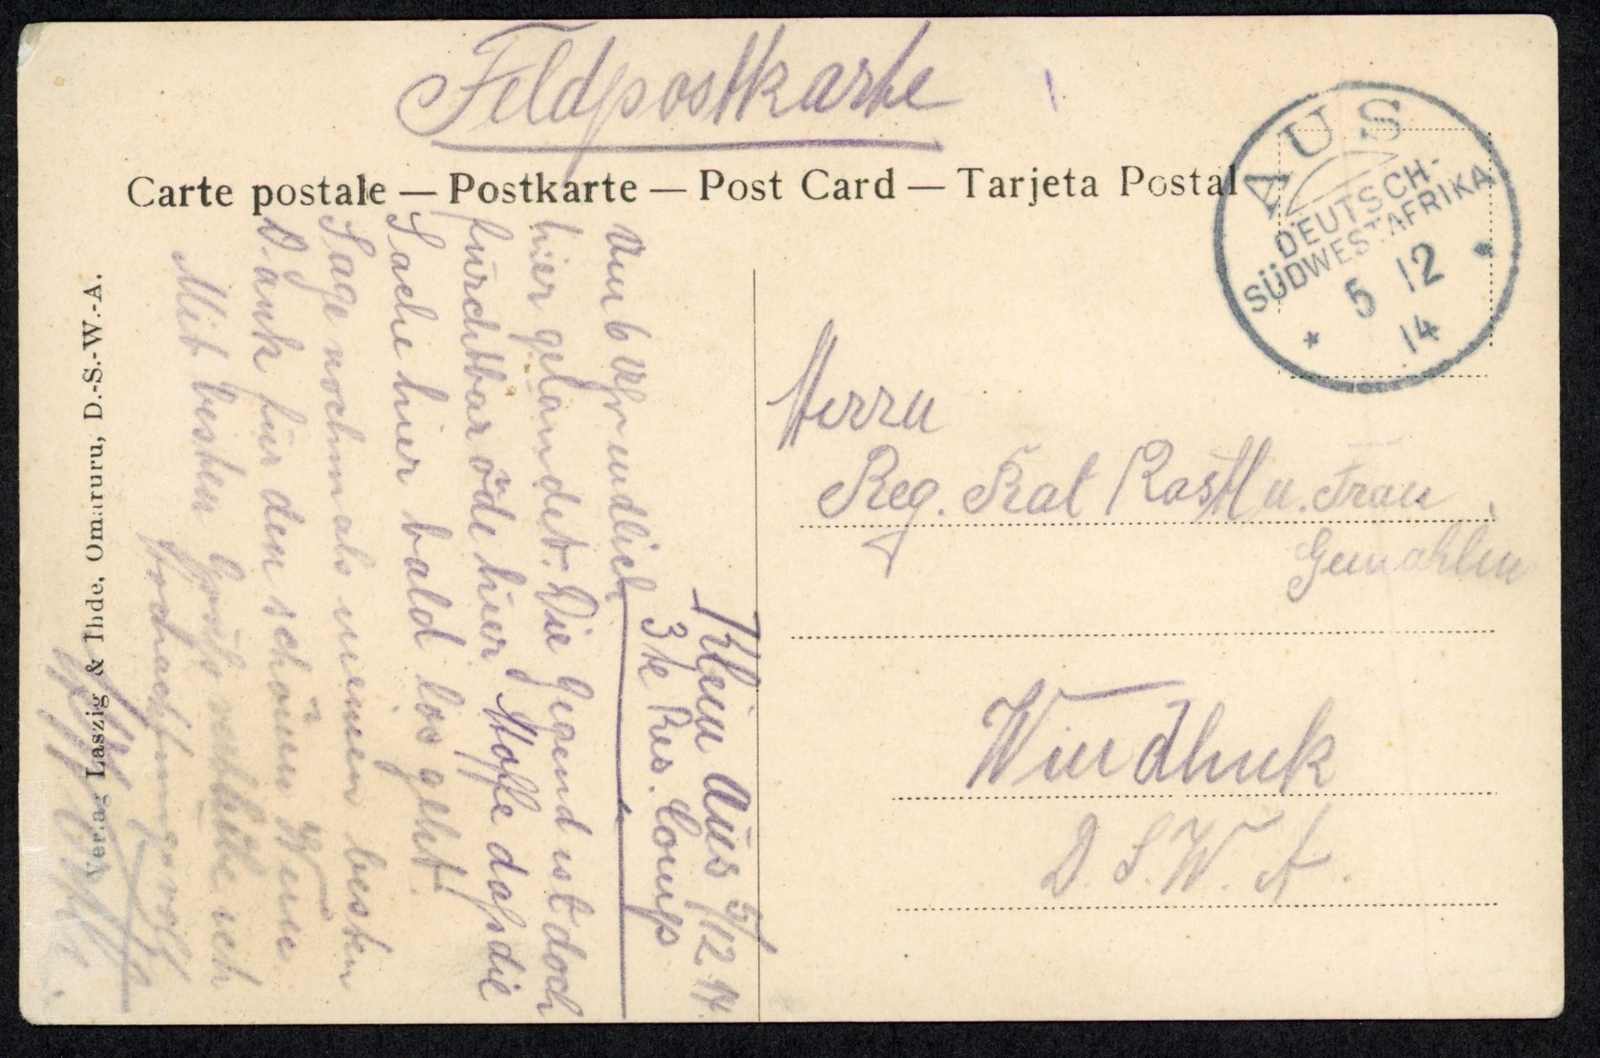 Feldpostkarte
Carte postale — Postkarte — Post Card — Tarjeta Postal
AUS
DEUTSCH-
SÜDWESTAFRIKA
5 12
14
Herrn
Reg. Rat Rastl u. Frau
Gemahlin
Windhuk
D. S. W. A.
Klein Aus 5/12 14.
3te Res. Comp
Um 6 Uhr endlich
hier gelandet. Die Gegend ist doch
furchtbar öde hier. Hoffe daß die
Sache hier bald los geht.
Sage nochmals meinen besten
Dank für den schönen Wein
Mit besten Gruß verbleibe ich
Hochachtungsvoll
Verlag Laszig & Thde, Omaruru, D.-S.-W.-A.